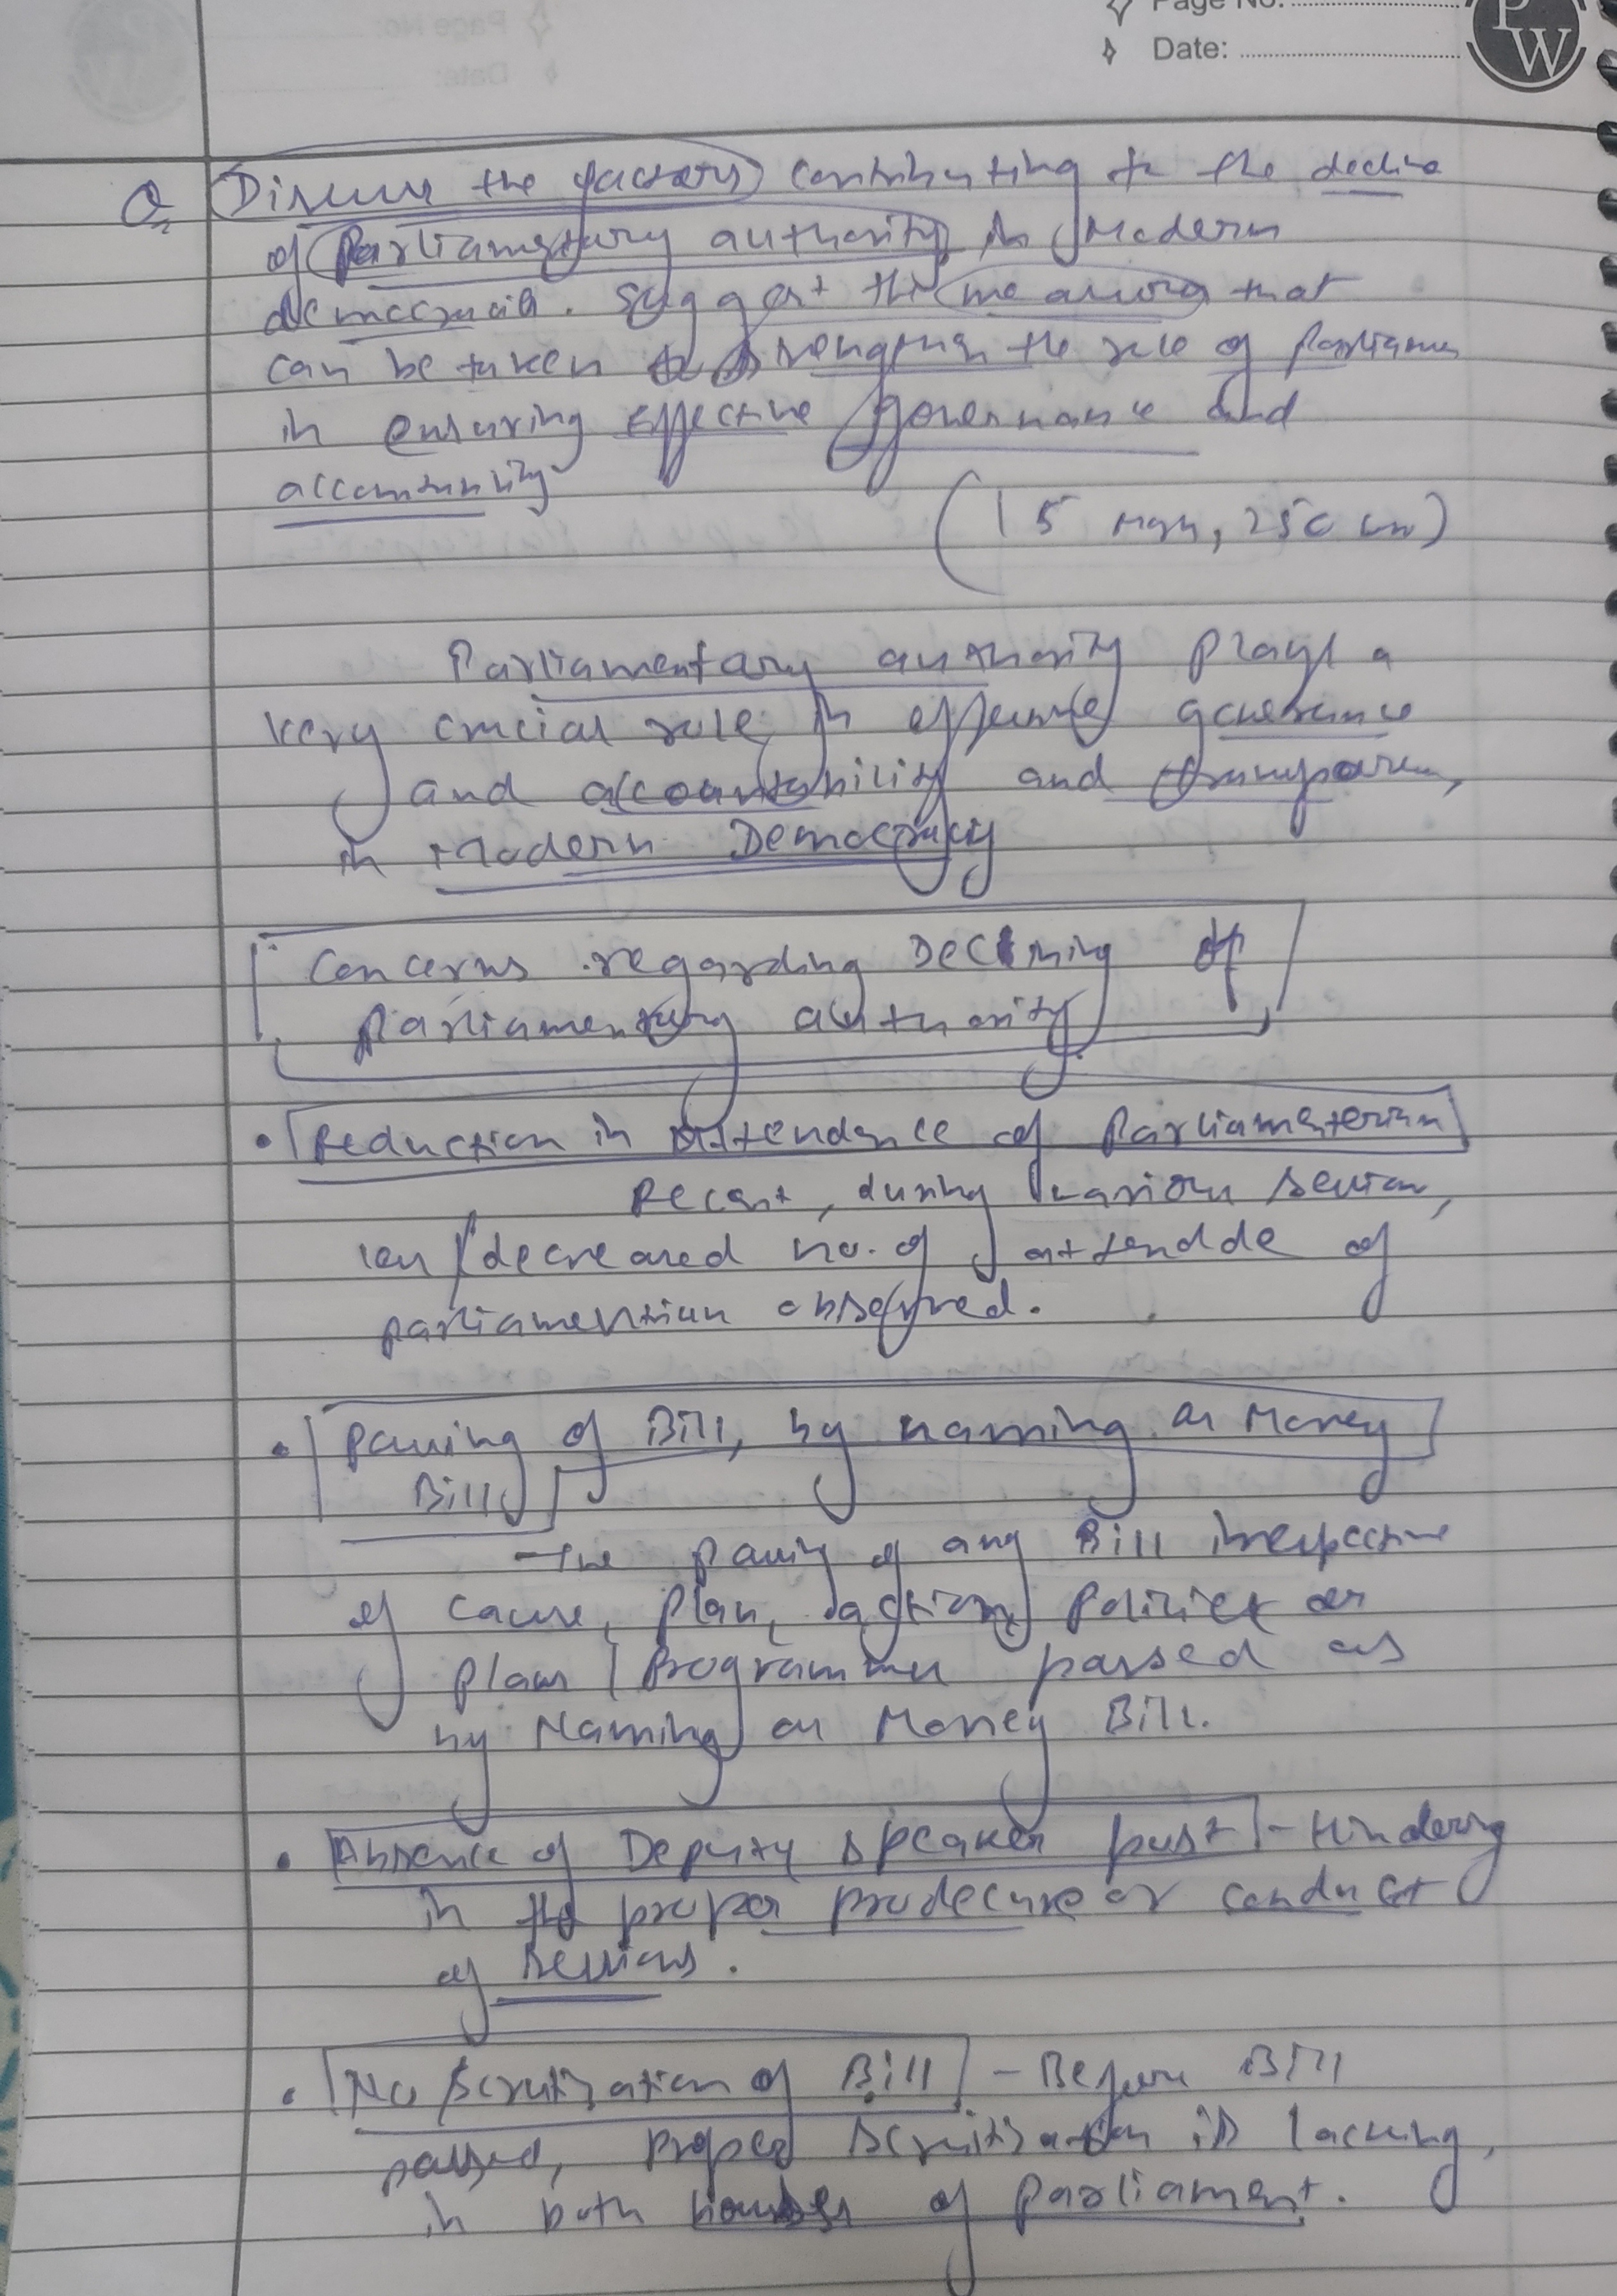 Page No.
Date:
PW
Q. Discuss the factors contributing to the decline
of Parliamentary authority in Modern
democracies. Suggest the measures that
can be taken to strengthen the role of Parliament
in ensuring effective governance and
accountability
(15 , 250 )
Parliamentary authority plays a
very crucial role in effective governance
and accountability and transparency
in Modern Democracy
Concerns regarding Declining of
parliamentary authority
• Reduction in attendence of Parliamenterian
Recent, during various session,
less / decreased no. of attendde of
parliamentian observed.
• Passing of Bill, by naming as Money
Bill
- The passing of any Bill irrespective
of cause, plan, policies or
plans / Programmes passed as
by Naming as Money Bill.
• Absence of Deputy speaker post - Hindering
in the proper prodecure or conduct
of sessions.
• No Scrutization of Bill - Before Bill
passed, proper scrutization is lacking,
in both houses of parliament.